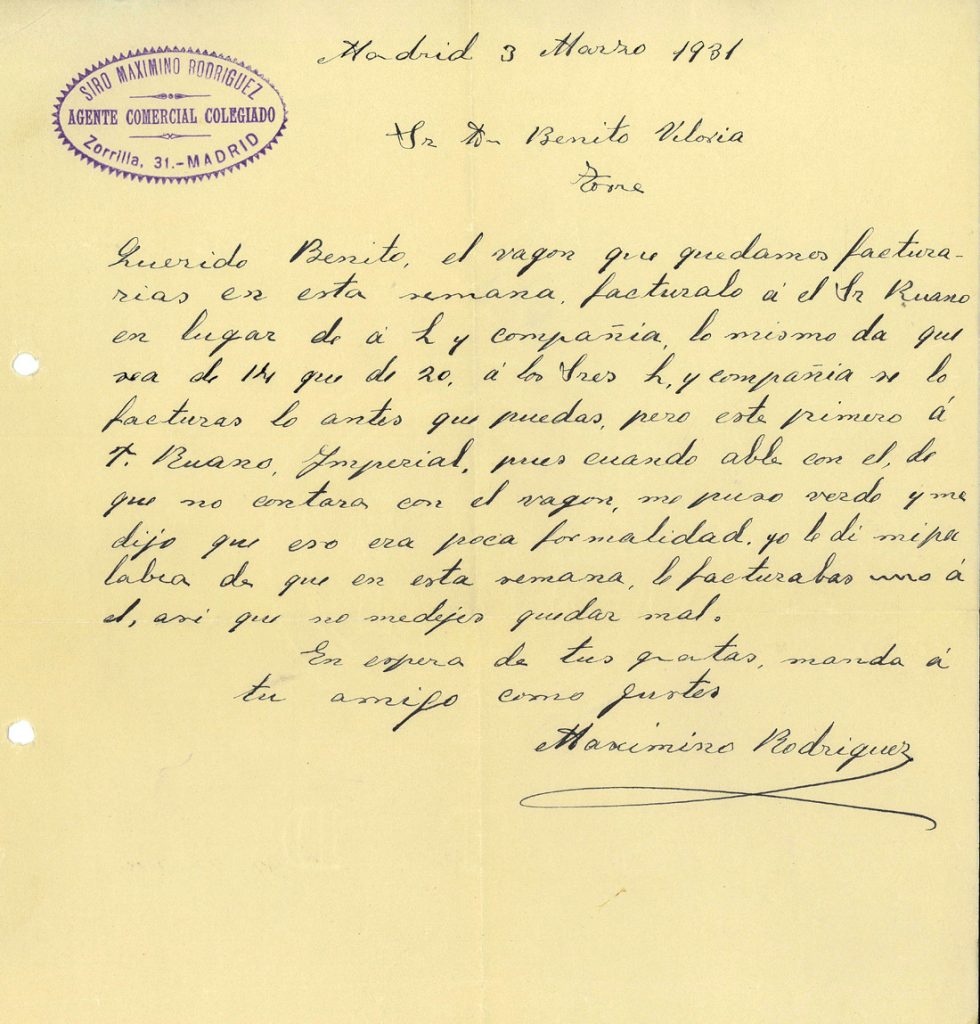 SIRO MAXIMINO RODRIGUEZ
AGENTE COMERCIAL COLEGIADO
Zorrilla, 31.-MADRID
Madrid 3 Marzo 1931
Sr Dn Benito Viloria
Torre
Querido Benito, el vagon que quedamos factura-
rias en esta semana, facturalo á el Sr Ruano
en lugar de á L y compañia, lo mismo da que
sea de que de 20, á los Sres L, y compañia se lo
facturas lo antes que puedas, pero este primero á
T. Ruano, Imperial, pues cuando able con el, de
que no contara con el vagon, me puso verde y me
dijo que eso era poca formalidad. yo le di mi pa
labra de que en esta semana, le facturabas uno á
el, asi que no medejes quedar mal.
En espera de tus gratas, manda á
tu amigo como gustes
Maximino Rodriguez